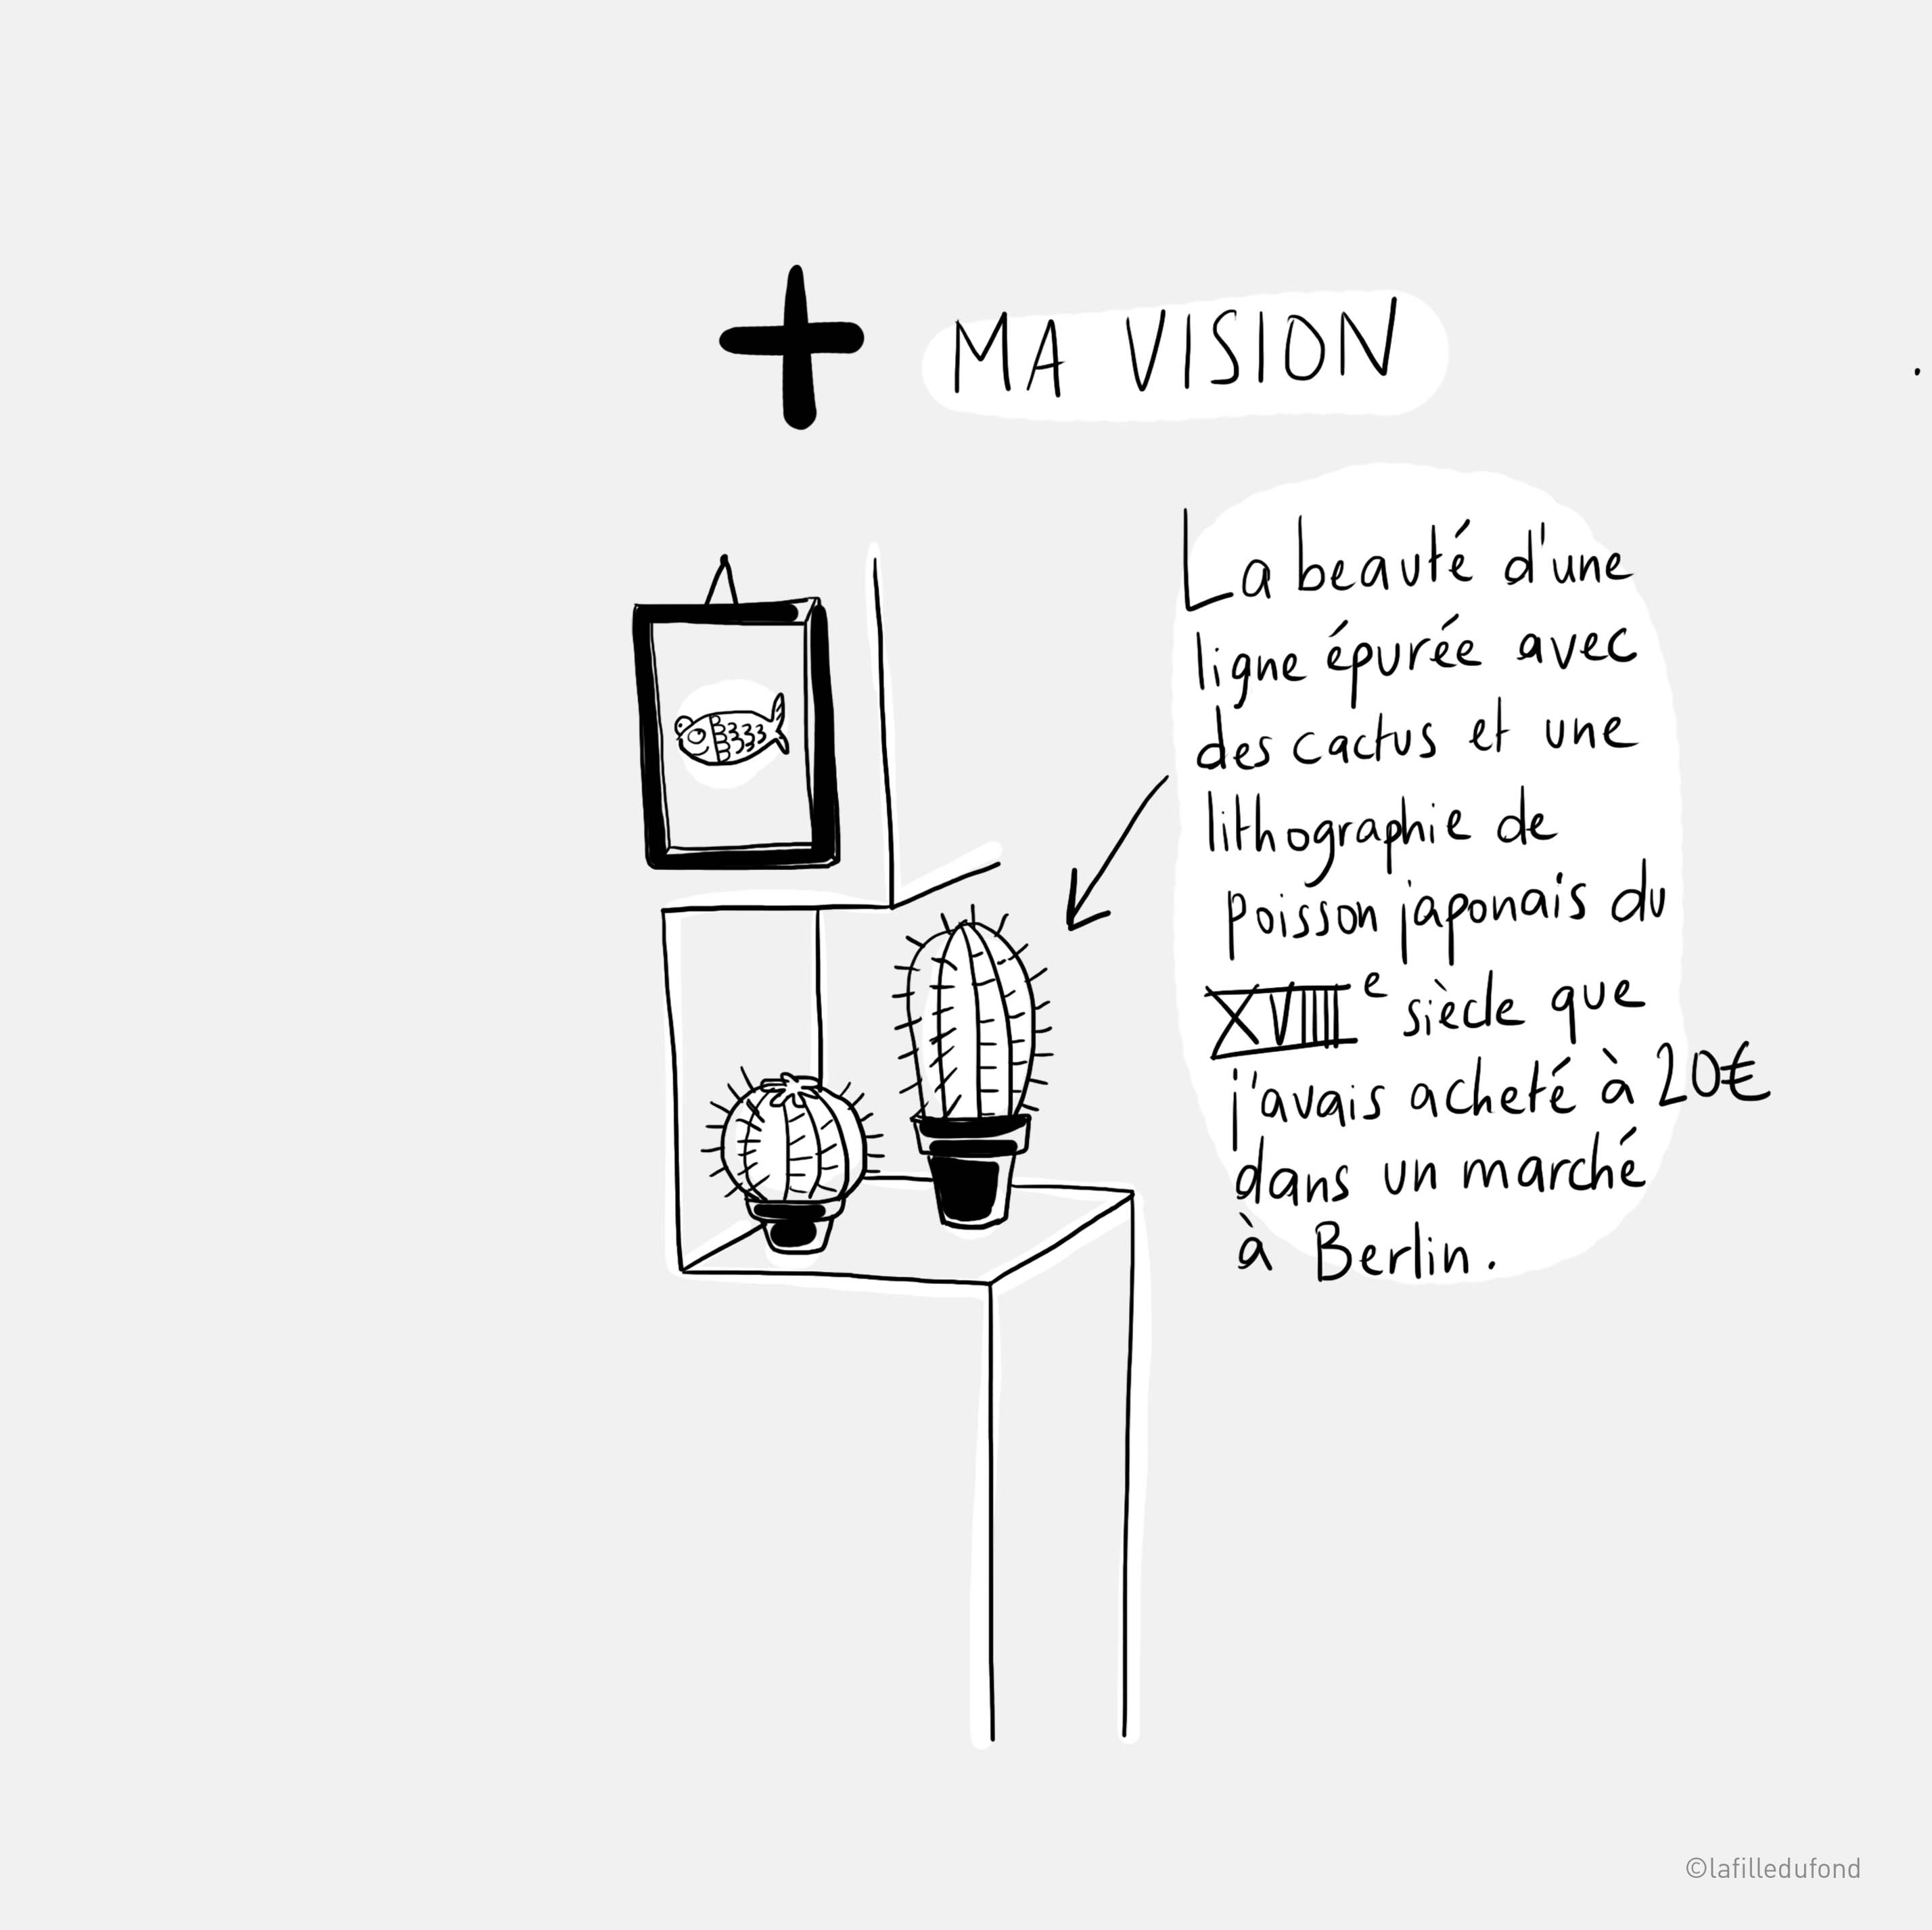 + MA VISION
La beauté d'une
ligne épurée avec
des cactus et une
lithographie de
poisson japonais du
XVIIIIe siècle que
j'avais acheté à 20€
dans un marché
à Berlin.
©lafilledufond